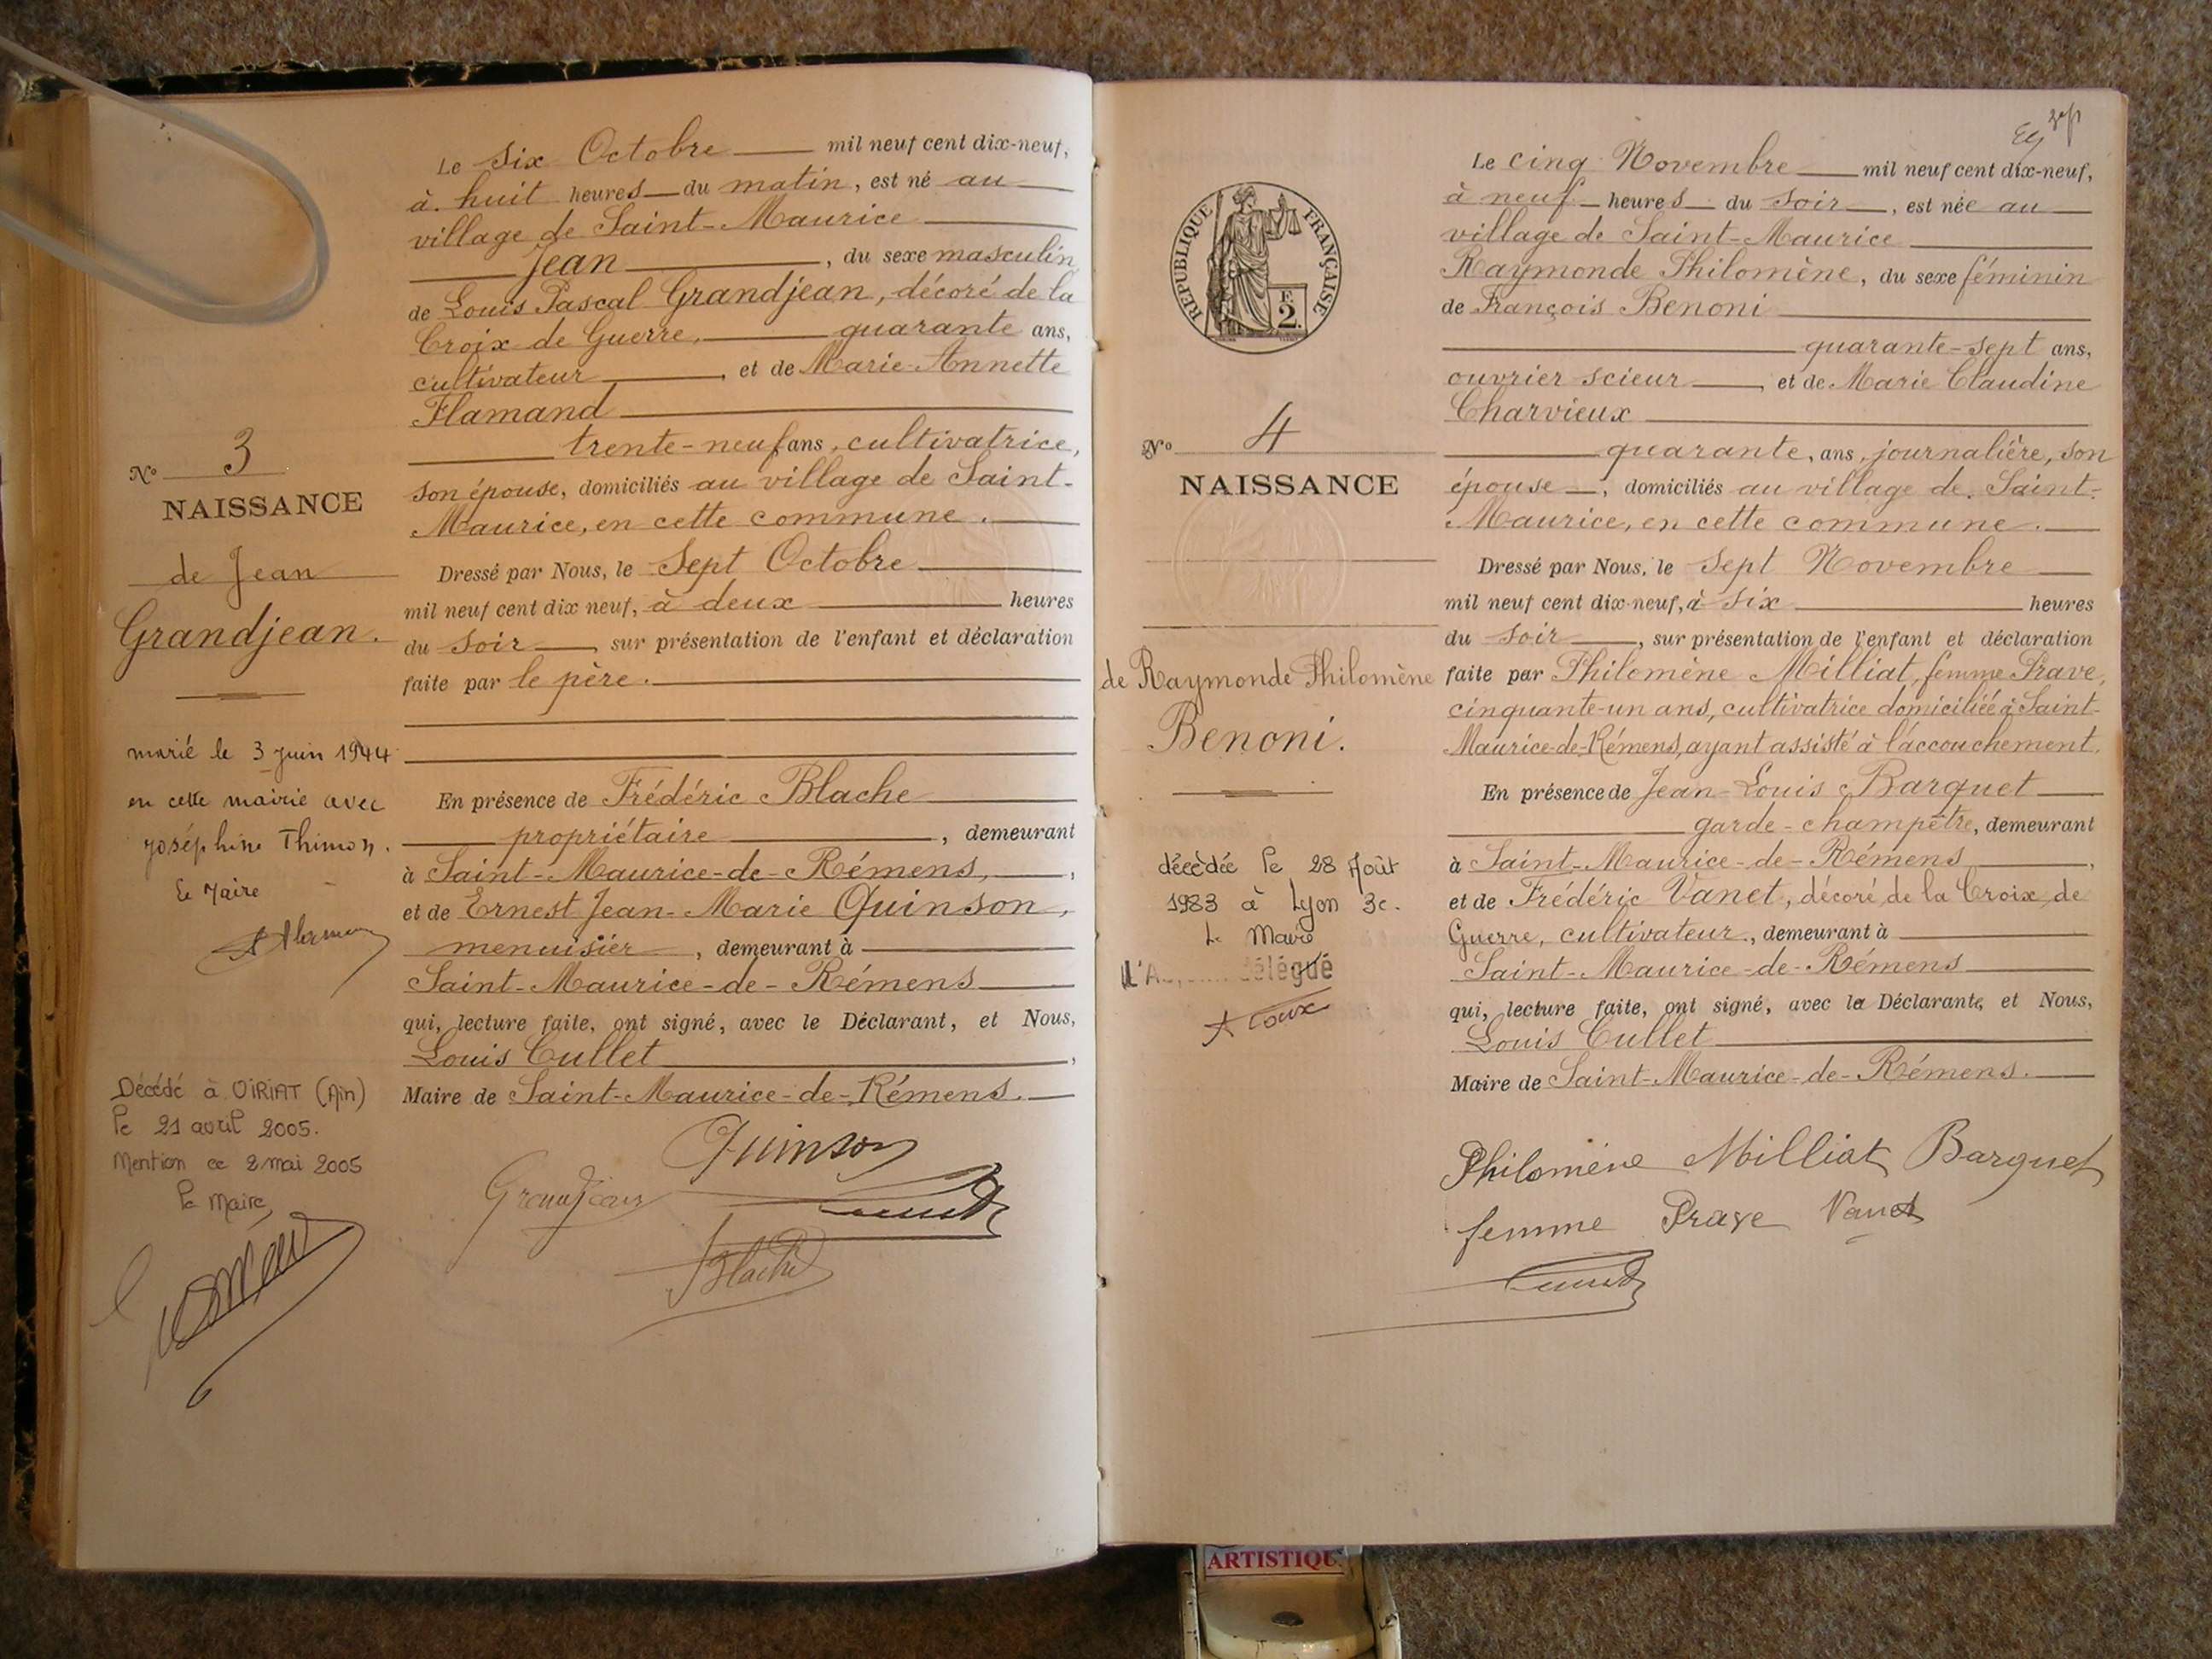 Le Six Octobre mil neuf cent dix-neuf,
à huit heures du matin, est né au
village de Saint-Maurice
Jean, du sexe masculin
de Louis Pascal Grandjean, décoré de la
Croix de Guerre, quarante ans,
cultivateur, et de Marie-Annette
Flamand
trente-neuf ans, cultivatrice,
son épouse, domiciliés au village de Saint-
Maurice, en cette commune.
Dressé par Nous, le Sept Octobre
mil neuf cent dix neuf, à deux heures
du Soir, sur présentation de l'enfant et déclaration
faite par le père.
En présence de Frédéric Blache
propriétaire, demeurant
à Saint-Maurice-de-Rémens,
et de Ernest Jean-Marie Quinson,
menuisier, demeurant à
Saint-Maurice-de-Rémens
qui, lecture faite, ont signé, avec le Déclarant, et Nous,
Louis Cullet,
Maire de Saint-Maurice-de-Rémens.
Quinson
Grandjean
Blache
No 3
NAISSANCE
de Jean
Grandjean.
marié le 3 juin 1944
en cette mairie avec
Joséphine Thimon.
Le Maire
Décédé à VIRIAT (Ain)
le 21 avril 2005.
Mention ce 2 mai 2005
le Maire,
RÉPUBLIQUE FRANÇAISE
F.
2.
No 4
NAISSANCE
de Raymonde Philomène
Benoni.
décédée le 28 Août
1983 à Lyon 3e.
Le Maire
délégué
Le cinq Novembre mil neuf cent dix-neuf,
à neuf heures du Soir, est née au
village de Saint-Maurice
Raymonde Philomène, du sexe féminin
de François Benoni
quarante-sept ans,
ouvrier scieur, et de Marie Claudine
Charvieux
quarante, ans, journalière, son
épouse, domiciliés au village de Saint-
Maurice, en cette commune.
Dressé par Nous, le Sept Novembre
mil neuf cent dix-neuf, à Six heures
du Soir, sur présentation de l'enfant et déclaration
faite par Philomène Milliat, femme Prave,
cinquante-un ans, cultivatrice domiciliée à Saint-
Maurice-de-Rémens, ayant assisté à l'accouchement.
En présence de Jean-Louis Barquet
garde-champêtre, demeurant
à Saint-Maurice-de-Rémens,
et de Frédéric Vanet, décoré de la Croix de
Guerre, cultivateur, demeurant à
Saint-Maurice-de-Rémens
qui, lecture faite, ont signé, avec la Déclarante, et Nous,
Louis Cullet
Maire de Saint-Maurice-de-Rémens.
Philomène Milliat Barquet
femme Prave Vanet
ARTISTIQU